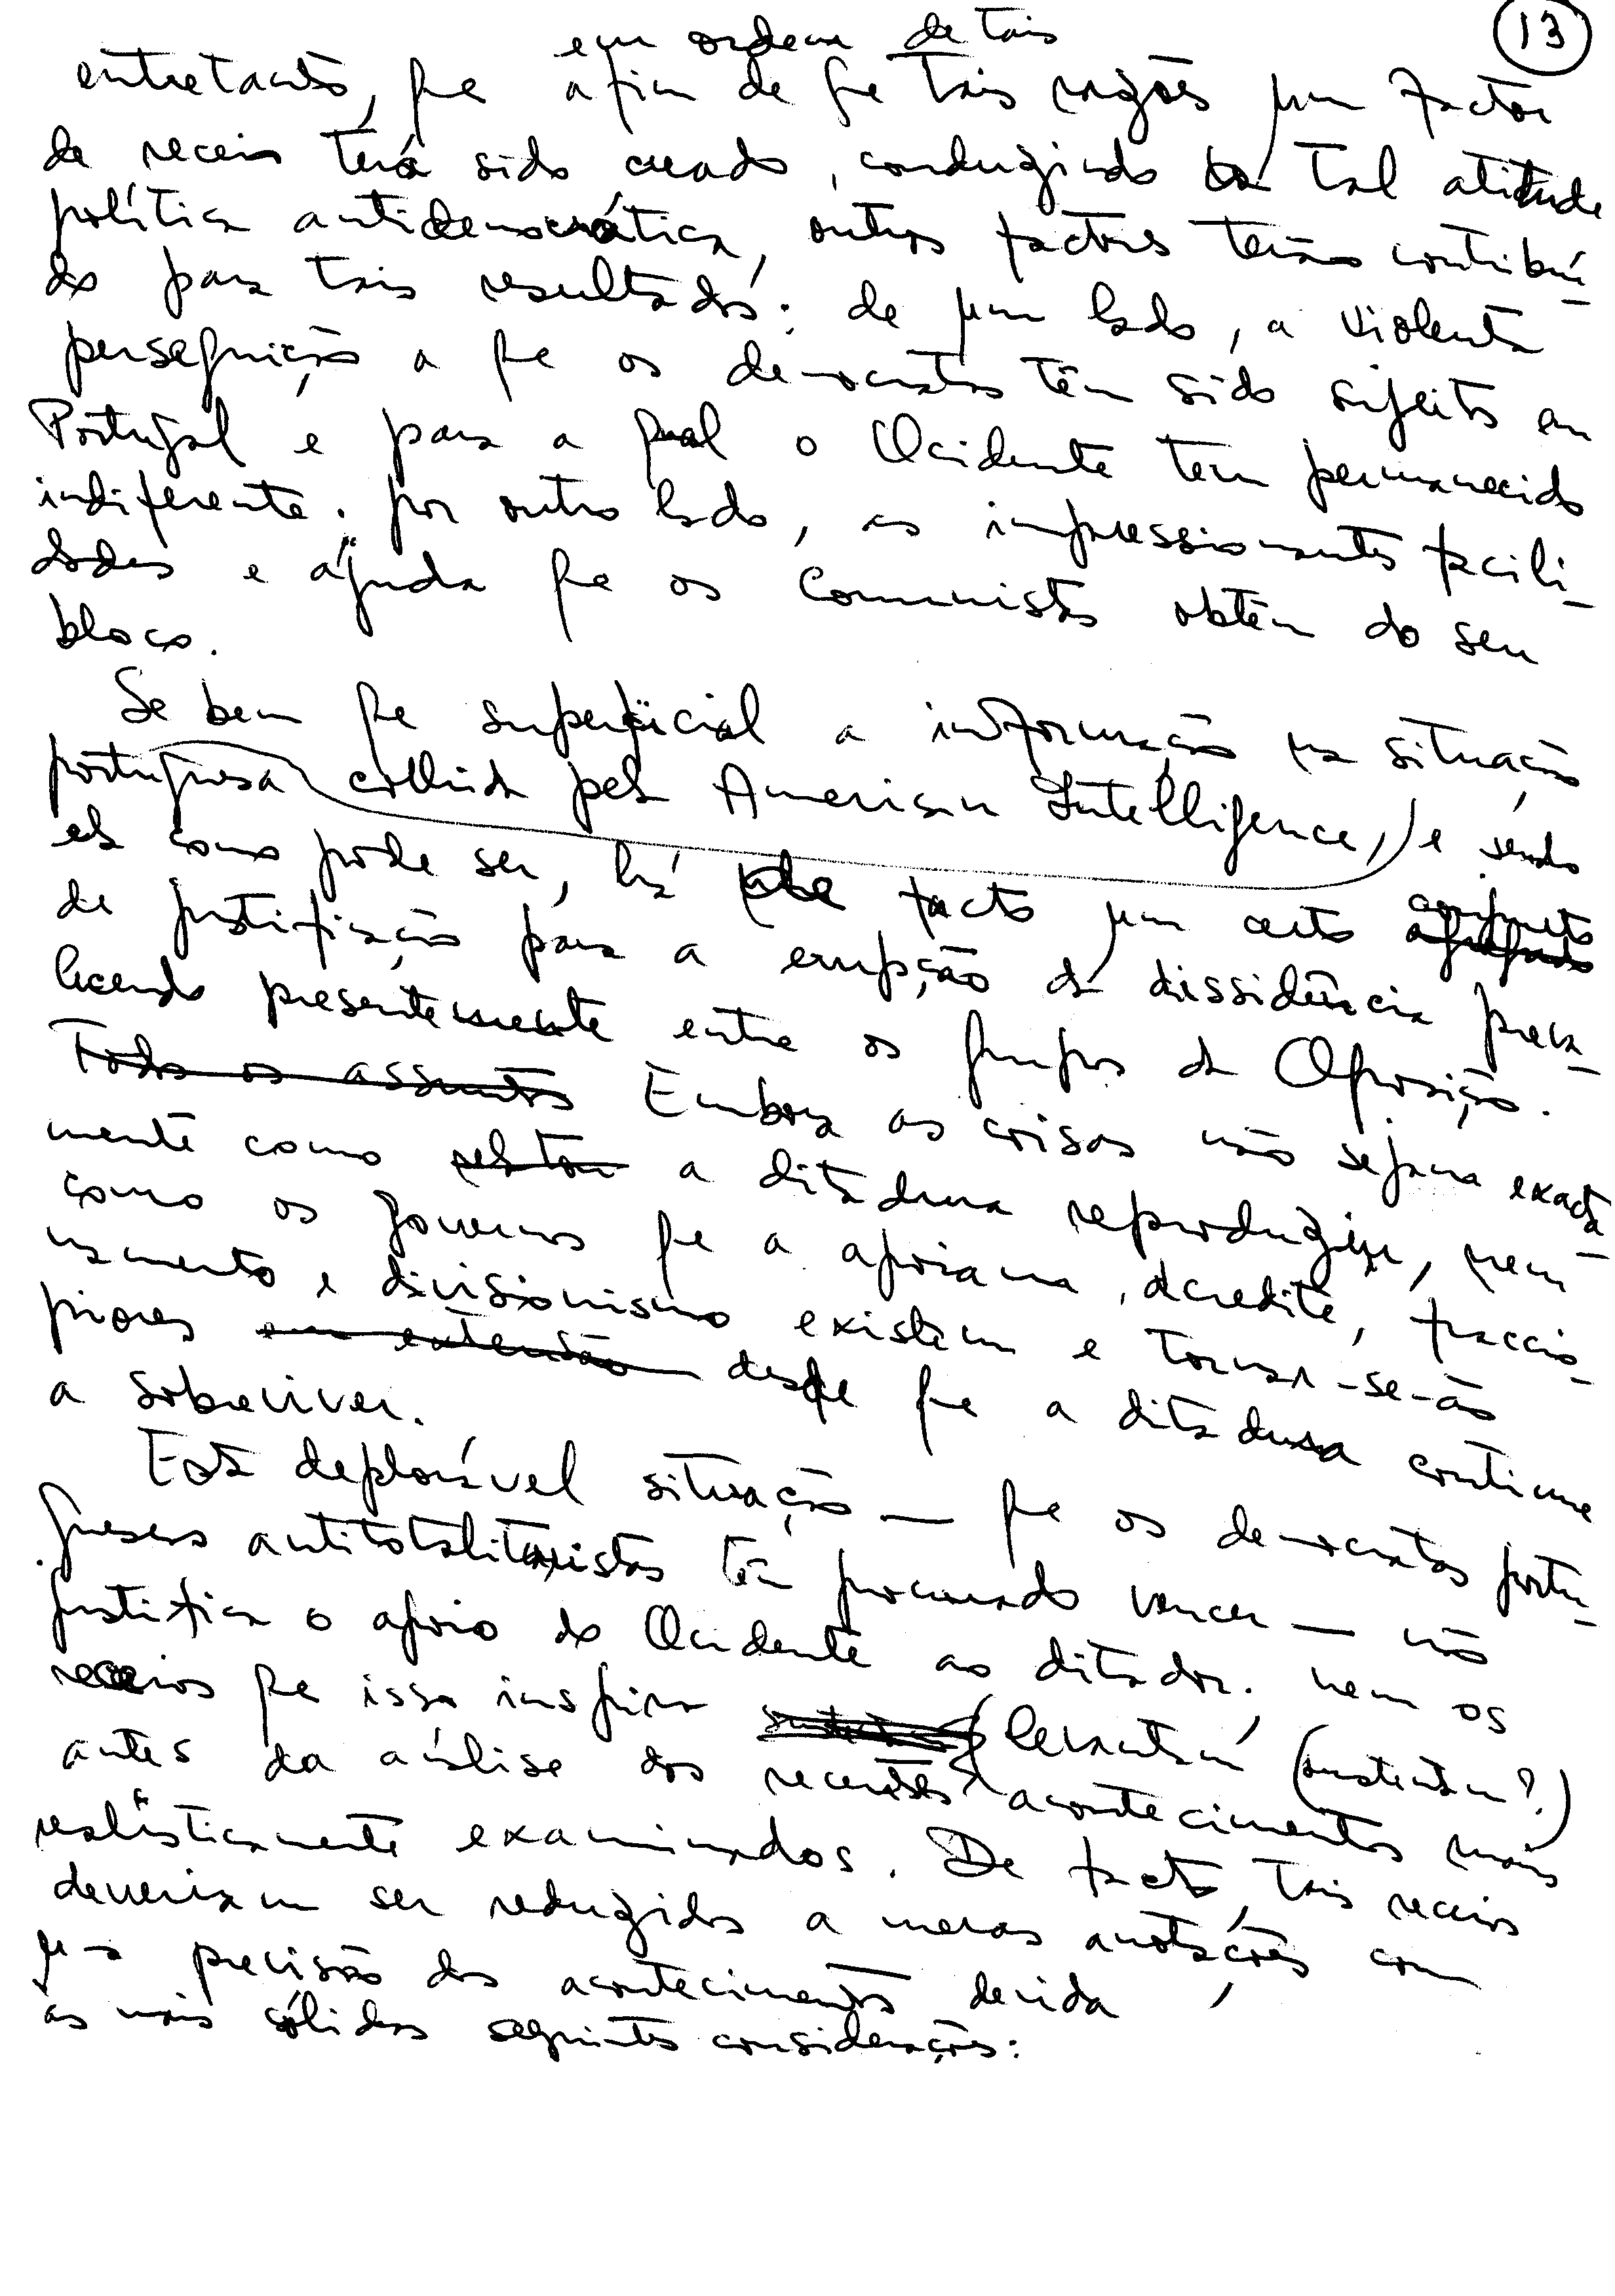 13
em ordem de tais
entretanto, que a fim de que tais razões um factor
de receio terá sido creado, conduzindo a tal atitude
política antidemocrática, outros factores terão contribuí-
do para tais resultados: de um lado, a violenta
perseguição a que os democratas têm sido sujeitos em
Portugal e para a qual o Ocidente tem permanecido
indiferente. por outro lado, as impressionantes facili-
dades e ajuda que os Comunistas obtêm do seu
bloco.
Se bem que superficial a informação na situação
portuguesa colhida pela American Intelligence, e sendo
ela como pode ser, há de facto um certo conjunto
de justificação para a erupção da dissidência preva-
lecendo presentemente entre os grupos da Oposição.
Todos os assuntos Embora as coisas não sejam exacta-
mente como a ditadura reproduzir, nem
como os governos que a apoiam, acredite, faccio-
namento e divisionismo existem e tornar-se-ão
piores em extensão desde que a ditadura continue
a sobreviver.
Esta deplorável situação — que os democratas portu-
gueses antitotalitaristas têm procurado vencer — não
justifica o apoio do Ocidente ao ditador. nem os
receios que isso inspira levantam (sustentam?)
antes da análise dos recentes acontecimentos mais
realísticamente examinados. De facto, tais receios
deveriam ser reduzidos a meras anotações com
precisão dos acontecimentos devida
às mais sólidas seguintes considerações: